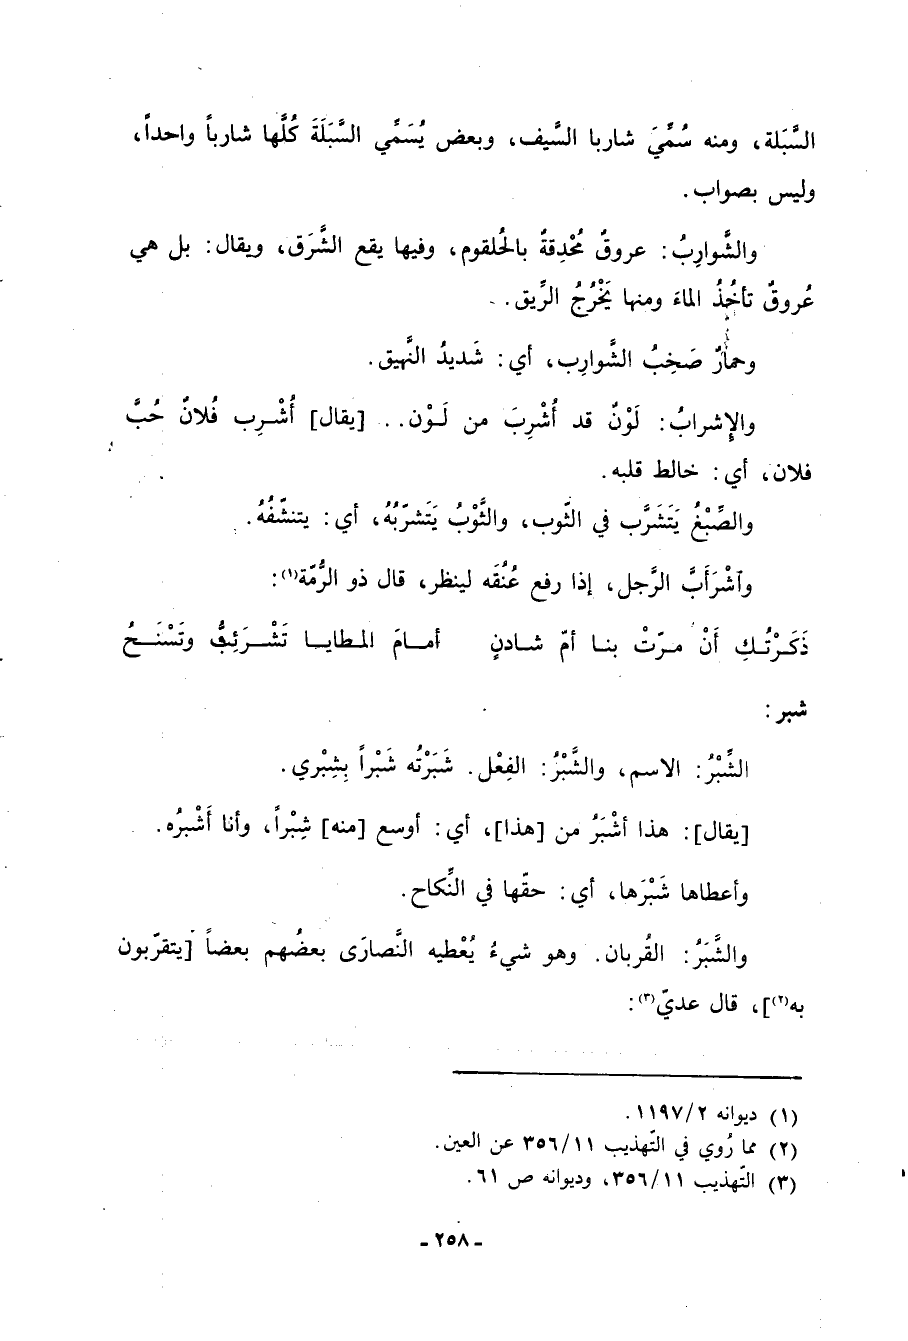 السَّبَلة، ومنه سُمِّيَ شاربا السَّيف، وبعض يُسَمِّي السَّبَلَةَ كُلَّها شارباً واحداً،
وليس بصواب.
والشَّوارِبُ: عروقٌ مُحْدِقةٌ بالحُلقوم، وفيها يقع الشَّرَق، ويقال: بل هي
عُروقٌ تأخُذُ الماءَ ومنها يَخْرُجُ الرِّيق.
وحمارٌ صَخِبُ الشَّوارِب، أي: شَديدُ النَّهيق.
والإشرابُ: لَوْنٌ قد أُشْرِبَ من لَوْن.. [يقال] أُشْرِب فُلانٌ حُبَّ
فلان، أي: خالط قلبه.
والصِّبْغُ يَتَشَرَّب في الثّوب، والثَّوْبُ يَتَشرّبُهُ، أي: يتنشّفُهُ.
وٱشْرَأَبَّ الرَّجل، إذا رفع عُنُقَه لينظر، قال ذو الرُّمّة(١):
ذَكَرْتُكِ أَنْ مرّتْ بنا أمّ شادنٍ أمامَ المطايا تَشْرَئِبُّ وتَسْنَحُ
شبر:
الشِّبْرُ: الاسم، والشَّبْرُ: الفِعْل. شَبَرْتُه شَبْراً بِشِبْري.
[يقال]: هذا أشْبَرُ من [هذا]، أي: أوسع [منه] شِبْراً، وأنا أَشْبرُه.
وأعطاها شَبْرَها، أي: حقّها في النِّكاح.
والشَّبَرُ: القُربان. وهو شيءُ يُعْطيه النَّصارَى بعضُهم بعضاً [يتقرّبون
به(٢)]، قال عديّ(٣):
(١) ديوانه ١١٩٧/٢.
(٢) مما رُوي في التّهذيب ٣٥٦/١١ عن العين.
(٣) التّهذيب ٣٥٦/١١، وديوانه ص ٦١.
- ٢٥٨ -